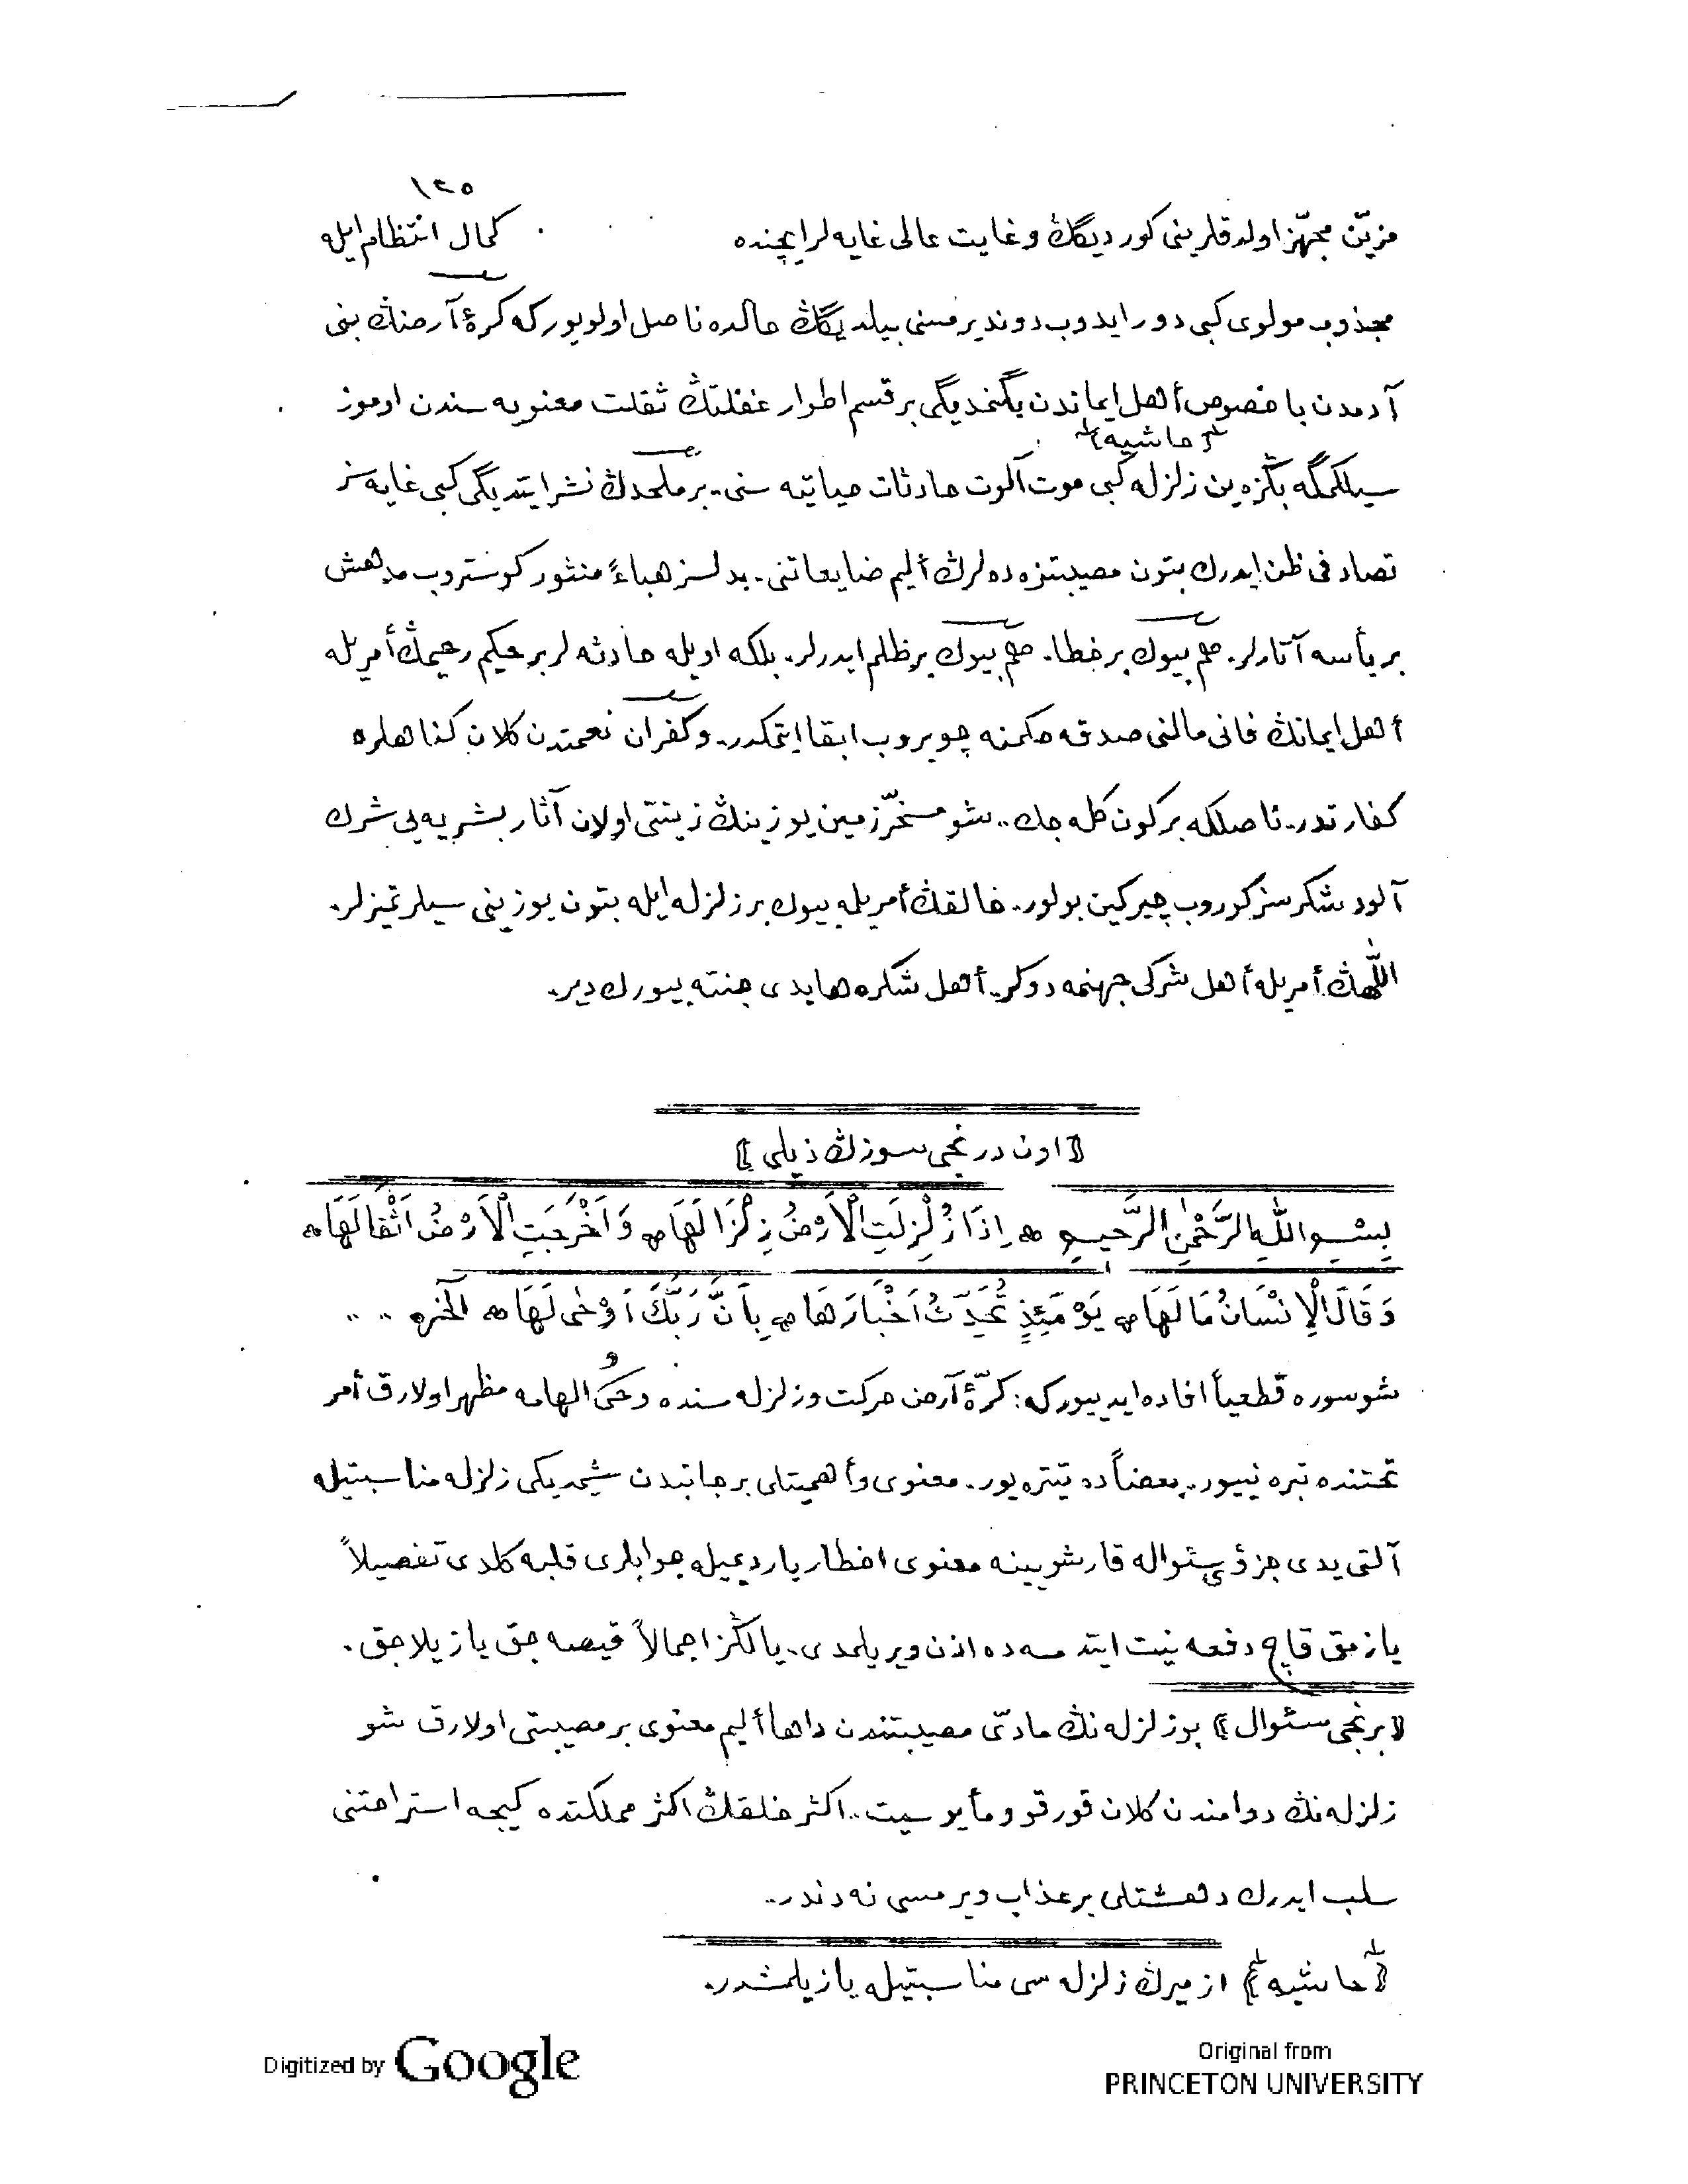 ١٢٥
مزيّن مجهّز اولدقلرينى كورديگڭ وغايت عالى غايه لر ايچنده كمال انتظام ايله
مجذوب مولوى كبى دور ايدوب دونديرمسنى بيلديگڭ حالده ناصل اولويوركه كرۀ أرضڭ بنى
آدمدن باخصوص أهل ايماندن بگنمديگى بر قسم اطوار غفلتڭ ثقلت معنويه سندن اوموز
﴿حاشيه﴾
سيلكمگه بگزه ين زلزله كبى موت آلود حادثات حياتيه سنى.. بر ملحدڭ نشر ايتديگى كبى غايه سز
تصادفى ظن ايدرك بتون مصيبتزده لرڭ أليم ضايعاتنى.. بدلسز هباءً منثور كوستروب مدهش
بر يأسه آتارلر. هم بيوك بر خطا. هم بيوك بر ظلم ايدرلر. بلكه اويله حادثه لر بر حكيم رحيمڭ أمريله
أهل ايمانڭ فانى مالنى صدقه حكمنه چويروب ابقا ايتمكدر. وكفران نعمتدن كلان كناهلره
كفارتدر. ناصلكه بر كون كله جك.. شو مسخّر زمين يوزينڭ زينتى اولان آثار بشريه يى شرك
آلود شكرسز كوروب چيركين بولور. خالقڭ أمريله بيوك بر زلزله ايله بتون يوزينى سيلر تميزلر.
اللّٰهڭ أمريله أهل شركى جهنمه دوكر. أهل شكره هايدى جنته بيورك دير.
﴿اون دردنجى سوزڭ ذيلى﴾
بِسْمِ اللّٰهِ الرَّحْمٰنِ الرَّحِيمِ ۝ اِذَا زُلْزِلَتِ الْاَرْضُ زِلْزَالَهَا ۝ وَاَخْرَجَتِ الْاَرْضُ اَثْقَالَهَا ۝
وَقَالَ الْاِنْسَانُ مَالَهَا ۝ يَوْمَئِذٍ تُحَدِّثُ اَخْبَارَهَا ۝ بِاَنَّ رَبَّكَ اَوْحٰى لَهَا ۝ الخره . . .
شو سوره قطعياً افاده ايدييوركه: كرّۀ أرض حركت وزلزله سنده وحىُ والهامه مظهر اولارق أمر
تحتنده تپره نييور.. بعضاً ده تيتره يور. معنوى وأهميتلى بر جانبدن شيمديكى زلزله مناسبتيله
آلتى يدى جزؤى سئواله قارشو يينه معنوى اخطار يارديميله جوابلرى قلبه كلدى تفصيلاً
يازمق قاچ دفعه نيت ايتدمسه ده اذن ويريلمدى. يالڭز اجمالاً قيصه جق يازيلاجق.
﴿برنجى سئوال﴾ بو زلزله نڭ مادّى مصيبتندن داها أليم معنوى بر مصيبتى اولارق شو
زلزله نڭ دوامندن كلان قورقو ومأيوسيت.. اكثر خلقڭ اكثر مملكتده كيجه استراحتنى
سلب ايدرك دهشتلى بر عذاب ويرمسى نه دندر..
﴿حاشيه﴾ ازميرڭ زلزله سى مناسبتيله يازيلمشدر.
Digitized by Google
Original from
PRINCETON UNIVERSITY